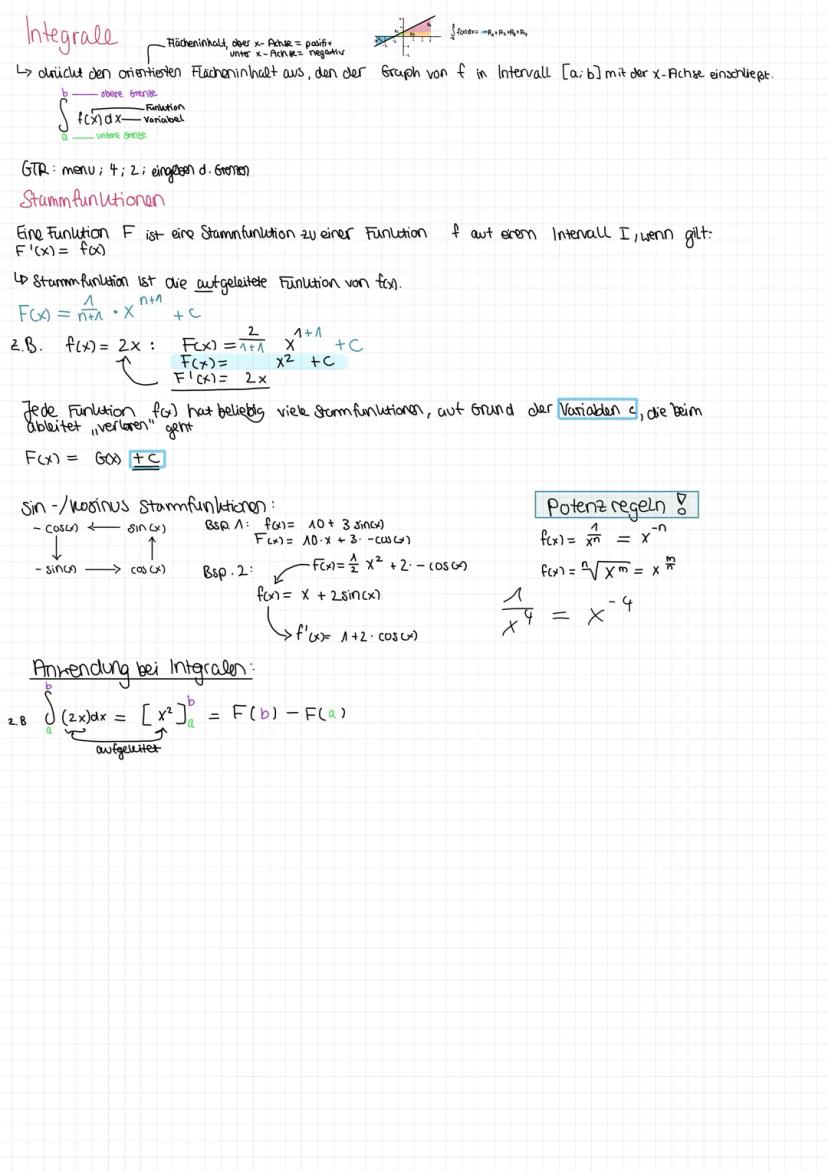 Integrale
Flächeninhalt, über x-Achse = positiv
unter x-Achse = negativ
↳ drückt den orientierten Flächeninhalt aus, den der Graph von f in Intervall [a;b] mit der x-Achse einschließt.
b — obere Grenze
∫ f(x) dx — Funktion
Variabel
a — untere Grenze
GTR: menu; 4; 2; eingeben d. Grenzen
Stammfunktionen
Eine Funktion F ist eine Stammfunktion zu einer Funktion f auf einem Intervall I, wenn gilt:
F'(x) = f(x)
↳ Stammfunktion ist die aufgeleitete Funktion von f(x).
F(x) = 1/(n+1) · x^(n+1) + c
z.B. f(x) = 2x : F(x) = 2/(1+1) x^(1+1) + C
F(x) = x² + C
F'(x) = 2x
Jede Funktion f(x) hat beliebig viele Stammfunktionen, auf Grund der Variablen c, die beim
ableitet „verloren" geht
F(x) = G(x) + C
sin-/Kosinus Stammfunktionen:
-cos(x) ← sin(x)
↓ ↑
-sin(x) → cos(x)
Bsp. 1: f(x) = 10 + 3 sin(x)
F(x) = 10·x + 3·-cos(x)
Bsp. 2: F(x) = 1/2 x² + 2·-cos(x)
f(x) = x + 2sin(x)
f'(x) = 1+2·cos(x)
Potenzregeln !
f(x) = 1/x^n = x^-n
f(x) = ⁿ√x^m = x^(m/n)
1/x^4 = x^-4
Anwendung bei Integralen:
z.B ∫_a^b (2x)dx = [x²]_a^b = F(b) - F(a)
aufgeleitet